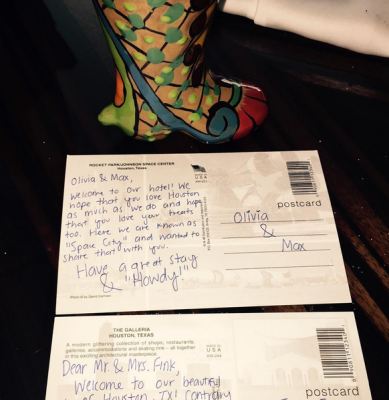 ROCKET PARK/JOHNSON SPACE CENTER
Houston, Texas
Olivia & Max,
Welcome to our hotel! We
hope that you love Houston
as much as we do and hope
that you love your treats
too. Here we are known as
"Space City" and wanted to
share that with you.
Have a great stay
& "Howdy"!
USA
postcard
Olivia
&
Max
THE GALLERIA
HOUSTON, TEXAS
A modern glittering collection of shops, restaurants,
galleries, accommodations and skating rink - all together
in this exciting architectural masterpiece.
MADE IN
USA
Dear Mr. & Mrs. Fink,
Welcome to our beautiful
of Houston, TX! Contrary
postcard